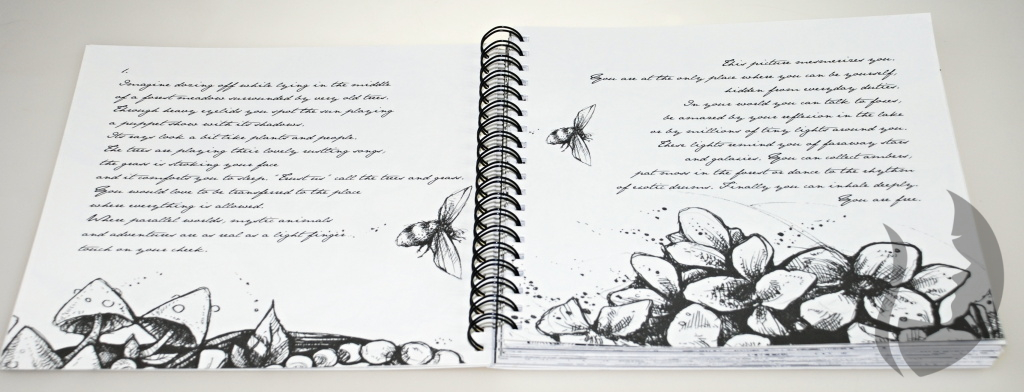 1.
Imagine dozing off while lying in the middle
of a forest meadow surrounded by very old trees.
Through heavy eyelids you spot the sun playing
a puppet show with its shadows.
Its rays look a bit like plants and people.
The trees are playing their lovely rustling songs,
the grass is stroking your face
and it comforts you to sleep. "Trust us" call the trees and grass.
You would love to be transferred to the place
where everything is allowed.
Where parallel worlds, mystic animals
and adventures are as real as a light finger
touch on your cheek.
This picture mesmerizes you.
You are at the only place where you can be yourself,
hidden from everyday duties.
In your world you can talk to foxes,
be amazed by your reflexion in the lake
or by millions of tiny lights around you.
These lights remind you of faraway stars
and galaxies. You can collect ambers,
put moss in the forest or dance to the rhythm
of exotic drums. Finally you can inhale deeply.
You are free.